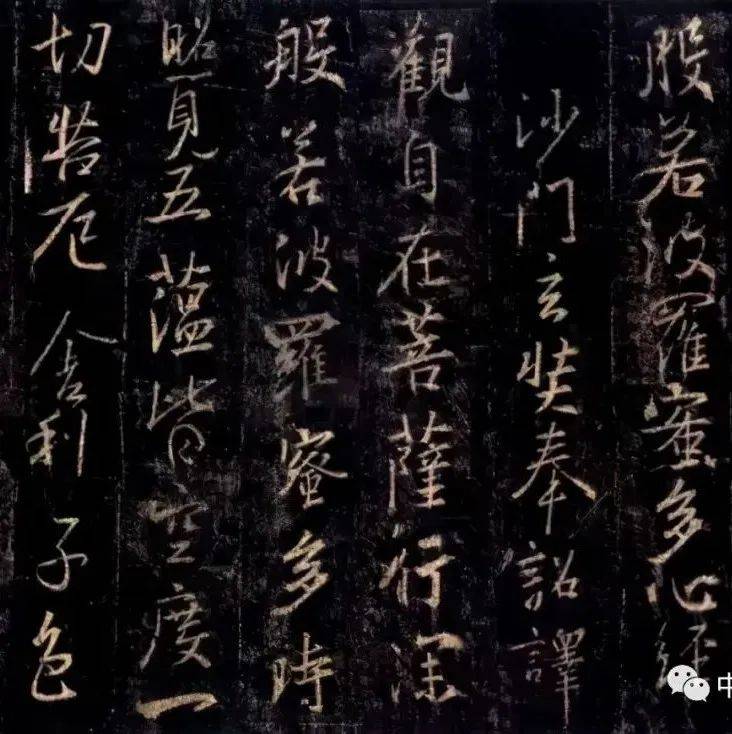 般若波羅蜜多心經
沙門玄奘奉詔譯
觀自在菩薩行深
般若波羅蜜多時
照見五蘊皆空度一
切苦厄舍利子色
中